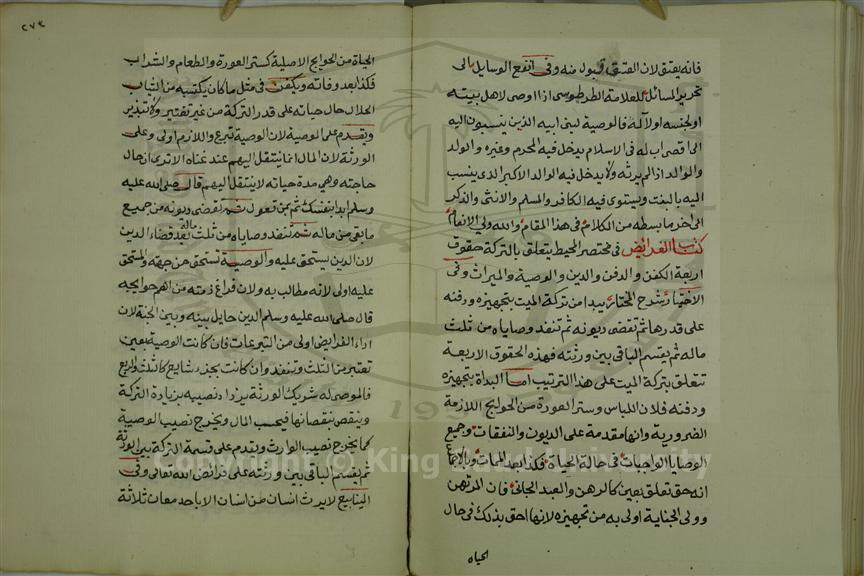 فانه يعتق لان العتق قبول منه وفى انفع الوسايل الى
تحرير المسائل للعلامة الطرطوسى اذا اوصى لاهل بيته
او لجنسه او لآله فالوصية لبنى ابيه الذين ينسبون اليه
الى اقصى اب له فى الاسلام يدخل فيه المحرم وغيره والولد
والوالد اذا لم يرثه ولا يدخل فيه الوالد الاكبر الذى ينسب
اليه بالبنت ويستوى فيه الكافر والمسلم والانثى والذكر
الى اخر ما بسطه من الكلام فى هذا المقام والله ولي الانعام
كتاب الفرائض فى مختصر المحيط يتعلق بالتركة حقوق
اربعة الكفن والدفن والدين والوصية والميراث وفى
الاختيار شرح المختار يبدا من تركة الميت بتجهيزه ودفنه
على قدرها ثم تقضى ديونه ثم تنفد وصاياه من ثلث
ماله ثم يقسم الباقى بين ورثته فهذه الحقوق الاربعة
تتعلق بتركة الميت على هذا الترتيب اما البداة بتجهيزه
ودفنه فلان اللباس وستر العورة من الحوايج اللازمة
الضرورية وانها مقدمة على الديون والنفقات وجميع
الوصايا الواجبات فى حالة الحياة فكذا بعد الممات وبالاجماع
انه حق تعلق بعين كالرهن والعبد الجانى فان المرتهن
وولى الجناية اولى به من تجهيزه لانها احق بذلك فى حال
الحياه
٢٧٣
الحياة من الحوايج الاصلية كستر العورة والطعام والشراب
فكذا بعد وفاته ويكفن فى مثل ما كان يكتسبه من الثياب
الحلال حال حياته على قدر التركة من غير تقتير ولا تبذير
ويقدم على الوصية لان الوصية تبرع واللازم اولى وعلى
الورثة لان المال انما ينتقل اليهم عند غناه الا ترى ان حال
حاجته وهى مدة حياته لا ينتقل اليهم قال صلى الله عليه
وسلم ابدا بنفسك ثم بمن تعول ثم تقضى ديونه من جميع
ما بقى من ماله ثم تنفد وصاياه من ثلث ماله بعد قضاء الدين
لان الدين يستحق عليه والوصية تستحق من جهته والمستحق
عليه اولى لانه مطالب به ولان فراغ ذمته من اهم حوايجه
قال صلى الله عليه وسلم الدين حايل بينه وبين الجنة لان
اداء الفرايض اولى من التبرعات فان كانت الوصية بعين
تعتبر من الثلث وتنفد وان كانت بجزء شايع كالثلث والربع
فالموصى له شريك الورثة يزداد نصيبه بزيادة التركة
وينقص بنقصانها فيحسب المال ويخرج نصيب الوصية
كما يخرج نصيب الوارث وتقدم على قسمة التركة بين الورثة
ثم يقسم الباقى بين ورثته على فرائض الله تعالى وفى
الينابيع لا يرث انسان من انسان الا باحد معان ثلاثة
Copyright © King Saud University